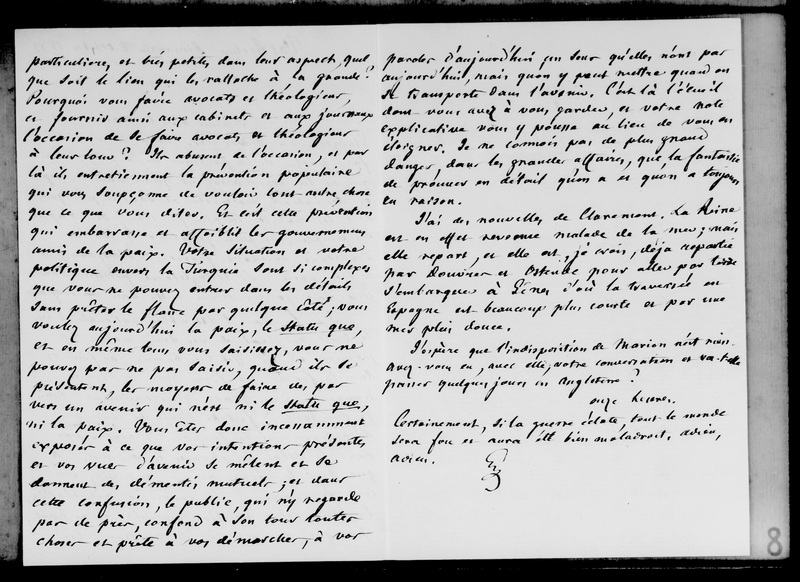 particulières et très petites dans leur aspect, quel,
que soit le lien qui les rattache à la grande?
Pourquoi vous faire avocats et théologiens,
et fournir ainsi aux cabinets et aux journaux
l'occasion de se faire avocats et théologiens
à leur tour? Ils abusent de l'occasion, et par
là ils entretiennent la prévention populaire
qui vous soupçonne de vouloir tout autre chose
que ce que vous dites. Et c'est cette prévention
qui embarrasse et affaiblit les gouvernemens
amis de la paix. Votre situation et votre
politique envers la Turquie sont si complexes
que vous ne pouvez entrer dans les détails
sans prêter le flanc par quelque côté; vous
voulez aujourd'hui la paix, le statu quo,
et en même tems vous saisissez, vous ne
pouvez pas ne pas saisir, quand ils se
présentent, les moyens de faire des pas
vers un avenir qui n'est ni le statu quo,
ni la paix. Vous êtes donc incessamment
exposés à ce que vos intentions présentes
et vos vues d'avenir se mêlent et se
donnent des démentis mutuels; et dans
cette confusion, le public, qui n'y regarde
pas de près, confond à son tour toutes
choses et prête à vos démarches, à vos
paroles d'aujourd'hui un sens qu'elles n'ont pas
aujourd'hui, mais qu'on y peut mettre quand on
se transporte dans l'avenir. C'est là l'écueil
dont vous avez à vous garder, et votre note
explicative vous y pousse au lieu de vous en
éloigner. Je ne connois pas de plus grand
danger, dans les grandes affaires, que la fantaisie
de prouver en détail qu'on a et qu'on a toujours
eu raison.
J'ai des nouvelles de Claremont. La Reine
est en effet revenue malade de la mer; mais
elle repart, et elle est, je crois, déjà repartie
par Douvres et Ostende pour aller par terre
s'embarquer à Gênes d'où la traversée en
Espagne est beaucoup plus courte et par une
mer plus douce.
J'espère que l'indisposition de Marion n'est rien.
Avez-vous eu, avec elle, votre conversation et va-t-elle
passer quelques jours en Angleterre?
onze heures.
Certainement, si la guerre éclate, tout le monde
sera fou et aura été bien maladroit. Adieu,
adieu.
G
8